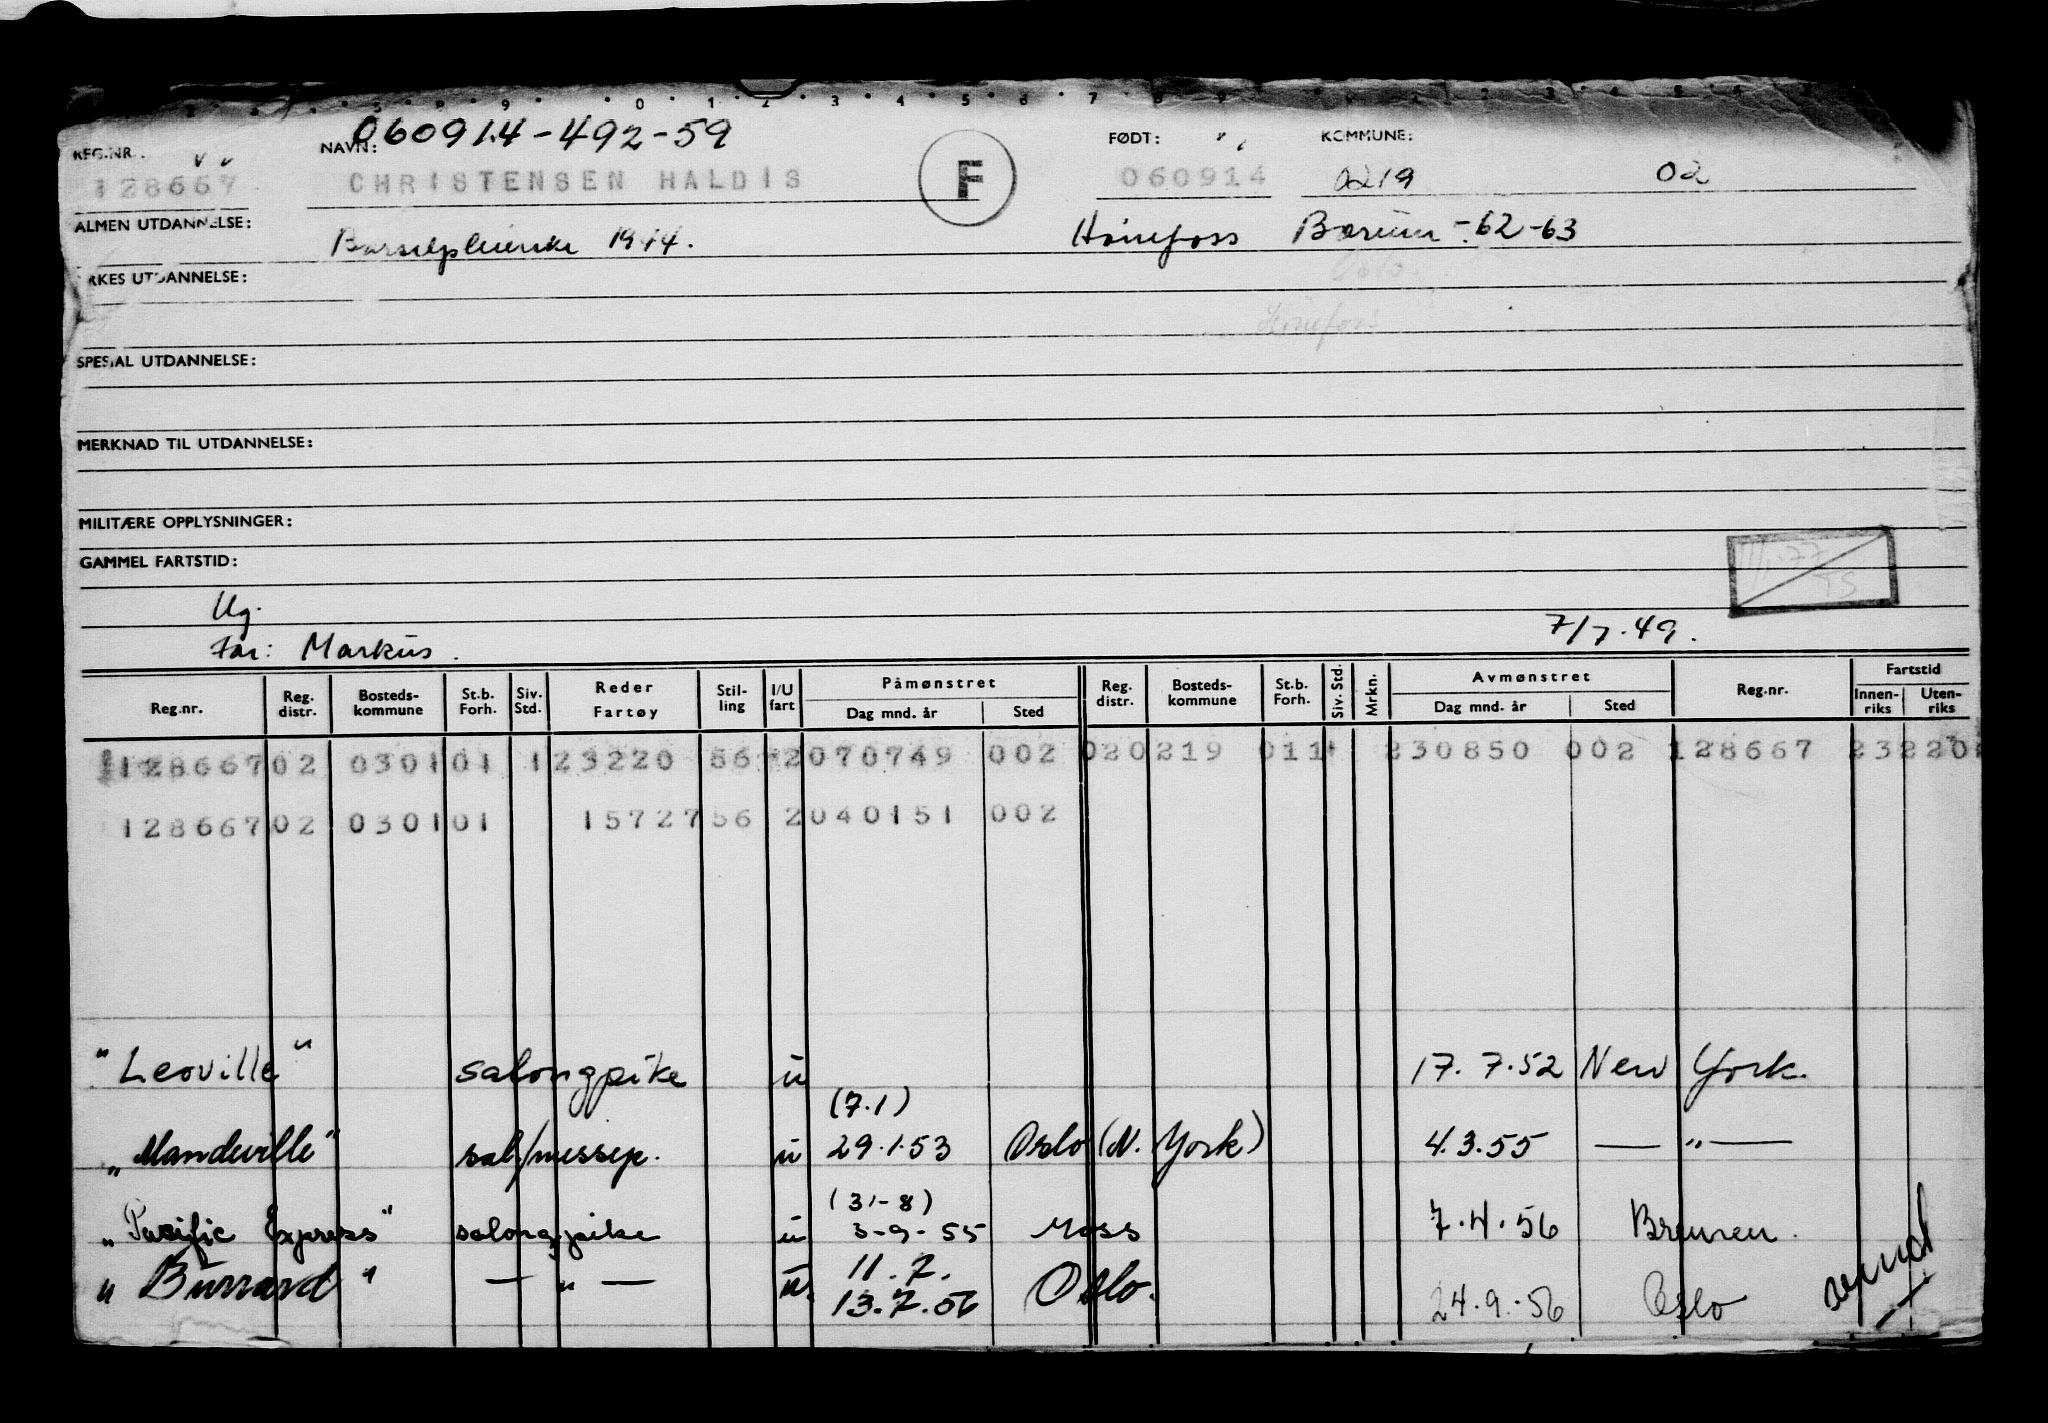 060914-492-59
REG.NR.: NAVN: FØDT: KOMMUNE:
128667 CHRISTENSEN HALDIS F 060914 0219 02
ALMEN UTDANNELSE: Barselpleierske 1944. Hönefoss Bærum -62-63
YRKES UTDANNELSE: Oslo.
Hönefoss
SPESIAL UTDANNELSE:
MERKNAD TIL UTDANNELSE:
MILITÆRE OPPLYSNINGER:
GAMMEL FARTSTID:
Ug.
Far: Markus. 7/7.49.
Reg.nr. Reg. distr. Bosteds-kommune St.b. Forh. Siv. Std. Reder Fartøy Stil-ling I/U fart Påmønstret Dag mnd. år Sted Reg. distr. Bosteds-kommune St.b. Forh. Siv. Std. Mrkn. Avmønstret Dag mnd. år Sted Reg.nr. Fartstid Innen-riks Uten-riks
128667 02 0301 01 1 23220 56 2 070749 002 02 0219 011 230850 002 128667 23220
128667 02 0301 01 15727 56 2 040151 002
"Leoville" salongpike u 17.7.52 New York.
(7.1)
"Mandeville" sal/messep. u 29.1.53 Oslo (N. York) 4.3.55 — " —
(31-8)
"Pacific Express" salongpike u 3-9-55 Moss 7.4.56 Bremen.
11.7.
"Burrard" — " — u. 13.7.56 Oslo. 24.9.56 Oslo